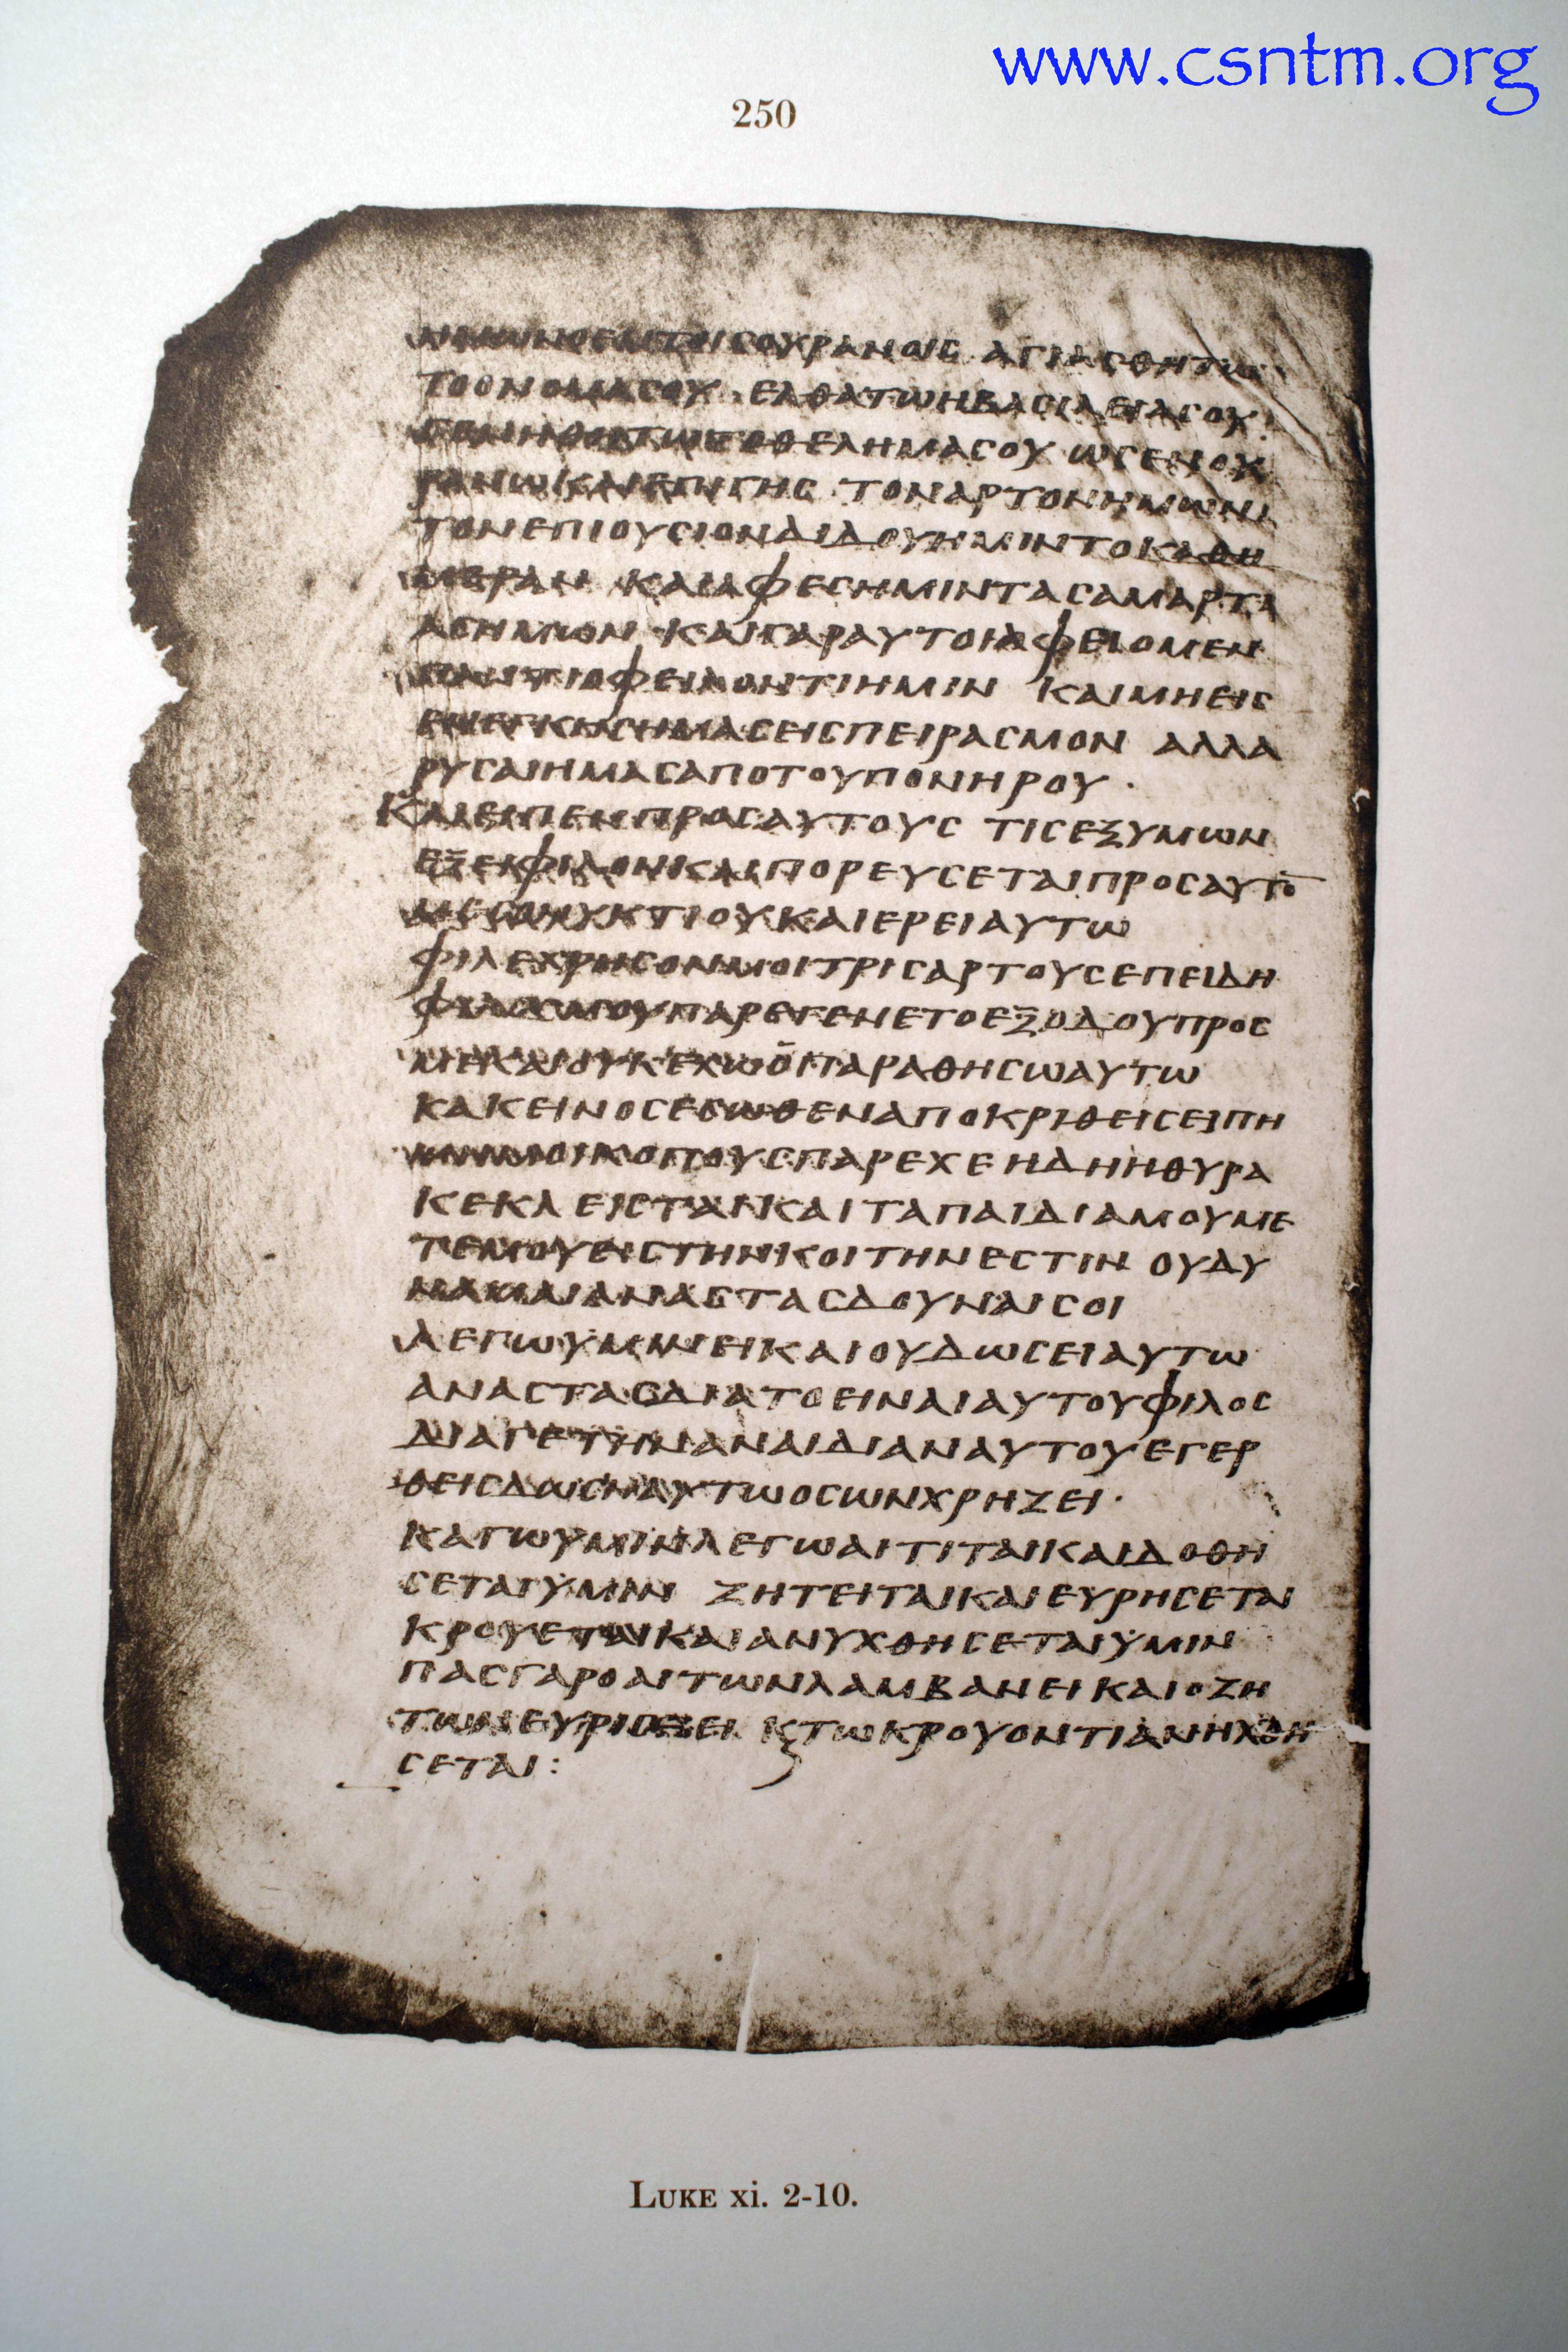 www.csntm.org
250
ΗΜΩΝΟΕΝΤΟΙСΟΥΡΑΝΟΙС ΑΓΙΑСΘΗΤΩ
ΤΟΟΝΟΜΑСΟΥ ΕΛΘΑΤΩΗΒΑСΙΛΕΙΑСΟΥ
ΤΟΘΕΛΗΜΑСΟΥ ΩСΕΝΟΥ
ΡΑΝΩΚΑΙΕΠΙΓΗС ΤΟΝΑΡΤΟΝΗΜΩΝ
ΤΟΝΕΠΙΟΥСΙΟΝΔΙΔΟΥΗΜΙΝΤΟΚΑΘΗ
ΜΕΡΑΝ ΚΑΙΑΦΕСΗΜΙΝΤΑСΑΜΑΡΤΙ
ΑСΗΜΩΝ ΚΑΙΓΑΡΑΥΤΟΙΑΦΕΙΟΜΕΝ
ΠΑΝΤΙΟΦΕΙΛΟΝΤΙΗΜΙΝ ΚΑΙΜΗΕΙС
ΕΝΕΓΚΗСΗΜΑСΕΙСΠΕΙΡΑСΜΟΝ ΑΛΛΑ
ΡΥСΑΙΗΜΑСΑΠΟΤΟΥΠΟΝΗΡΟΥ·
ΚΑΙΕΙΠΕΝΠΡΟСΑΥΤΟΥС ΤΙСΕΞΥΜΩΝ
ΕΞΕΙΦΙΛΟΝΚΑΙΠΟΡΕΥСΕΤΑΙΠΡΟСΑΥΤΟ̅
ΜΕСΟΝΥΚΤΙΟΥΚΑΙΕΡΕΙΑΥΤΩ
ΦΙΛΕΧΡΗСΟΝΜΟΙΤΡΙСΑΡΤΟΥСΕΠΕΙΔΗ
ΦΙΛΟСΜΟΥΠΑΡΕΓΕΝΕΤΟΕΞΟΔΟΥΠΡΟС
ΜΕΚΑΙΟΥΚΕΧΩΟΠΑΡΑΘΗСΩΑΥΤΩ
ΚΑΚΕΙΝΟСΕСΩΘΕΝΑΠΟΚΡΙΘΕΙСΕΙΠΗ
ΜΗΜΟΙΚΟΠΟΥСΠΑΡΕΧΕ ΗΔΗΗΘΥΡΑ
ΚΕΚΛΕΙСΤΑΙΚΑΙΤΑΠΑΙΔΙΑΜΟΥΜΕ
ΤΕΜΟΥΕΙСΤΗΝΚΟΙΤΗΝΕСΤΙΝ ΟΥΔΥ
ΝΑΜΑΙΑΝΑСΤΑСΔΟΥΝΑΙСΟΙ
ΛΕΓΩΥΜΙΝΕΙΚΑΙΟΥΔΩСΕΙΑΥΤΩ
ΑΝΑСΤΑСΔΙΑΤΟΕΙΝΑΙΑΥΤΟΥΦΙΛΟС
ΔΙΑΓΕΤΗΝΑΝΑΙΔΙΑΝΑΥΤΟΥΕΓΕΡ
ΘΕΙСΔΩСΗΑΥΤΩΟСΩΝΧΡΗΖΕΙ·
ΚΑΓΩΥΜΙΝΛΕΓΩΑΙΤΙΤΑΙΚΑΙΔΟΘΗ
СΕΤΑΙΥΜΙΝ ΖΗΤΕΙΤΑΙΚΑΙΕΥΡΗСΕΤΑΙ
ΚΡΟΥΕΤΑΙΚΑΙΑΝΥΧΘΗСΕΤΑΙΥΜΙΝ
ΠΑСΓΑΡΟΑΙΤΩΝΛΑΜΒΑΝΕΙΚΑΙΟΖΗ
ΤΩΝΕΥΡΙСΚΕΙ ΚΤΩΚΡΟΥΟΝΤΙΑΝΗΧΘΗ
СΕΤΑΙ:
LUKE xi. 2-10.